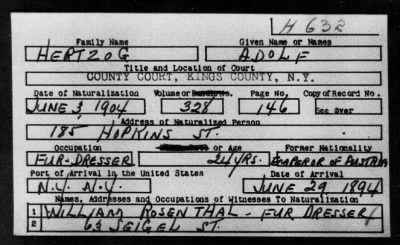 H 632
Family Name Given Name or Names
HERTZOG ADOLF
Title and Location of Court
COUNTY COURT, KINGS COUNTY, N.Y.
Date of Naturalization Volume or Page No. Copy of Record No.
JUNE 3, 1904 328 146 See Over
Address of Naturalized Person
185 HOPKINS ST.
Occupation or Age Former Nationality
FUR-DRESSER 24 YRS. EMPEROR OF AUSTRIA
Port of Arrival in the United States Date of Arrival
N.Y. N.Y. JUNE 29 1894
Names, Addresses and Occupations of Witnesses To Naturalization
1 WILLIAM ROSENTHAL - FUR DRESSER
2 63 SEIGEL ST.